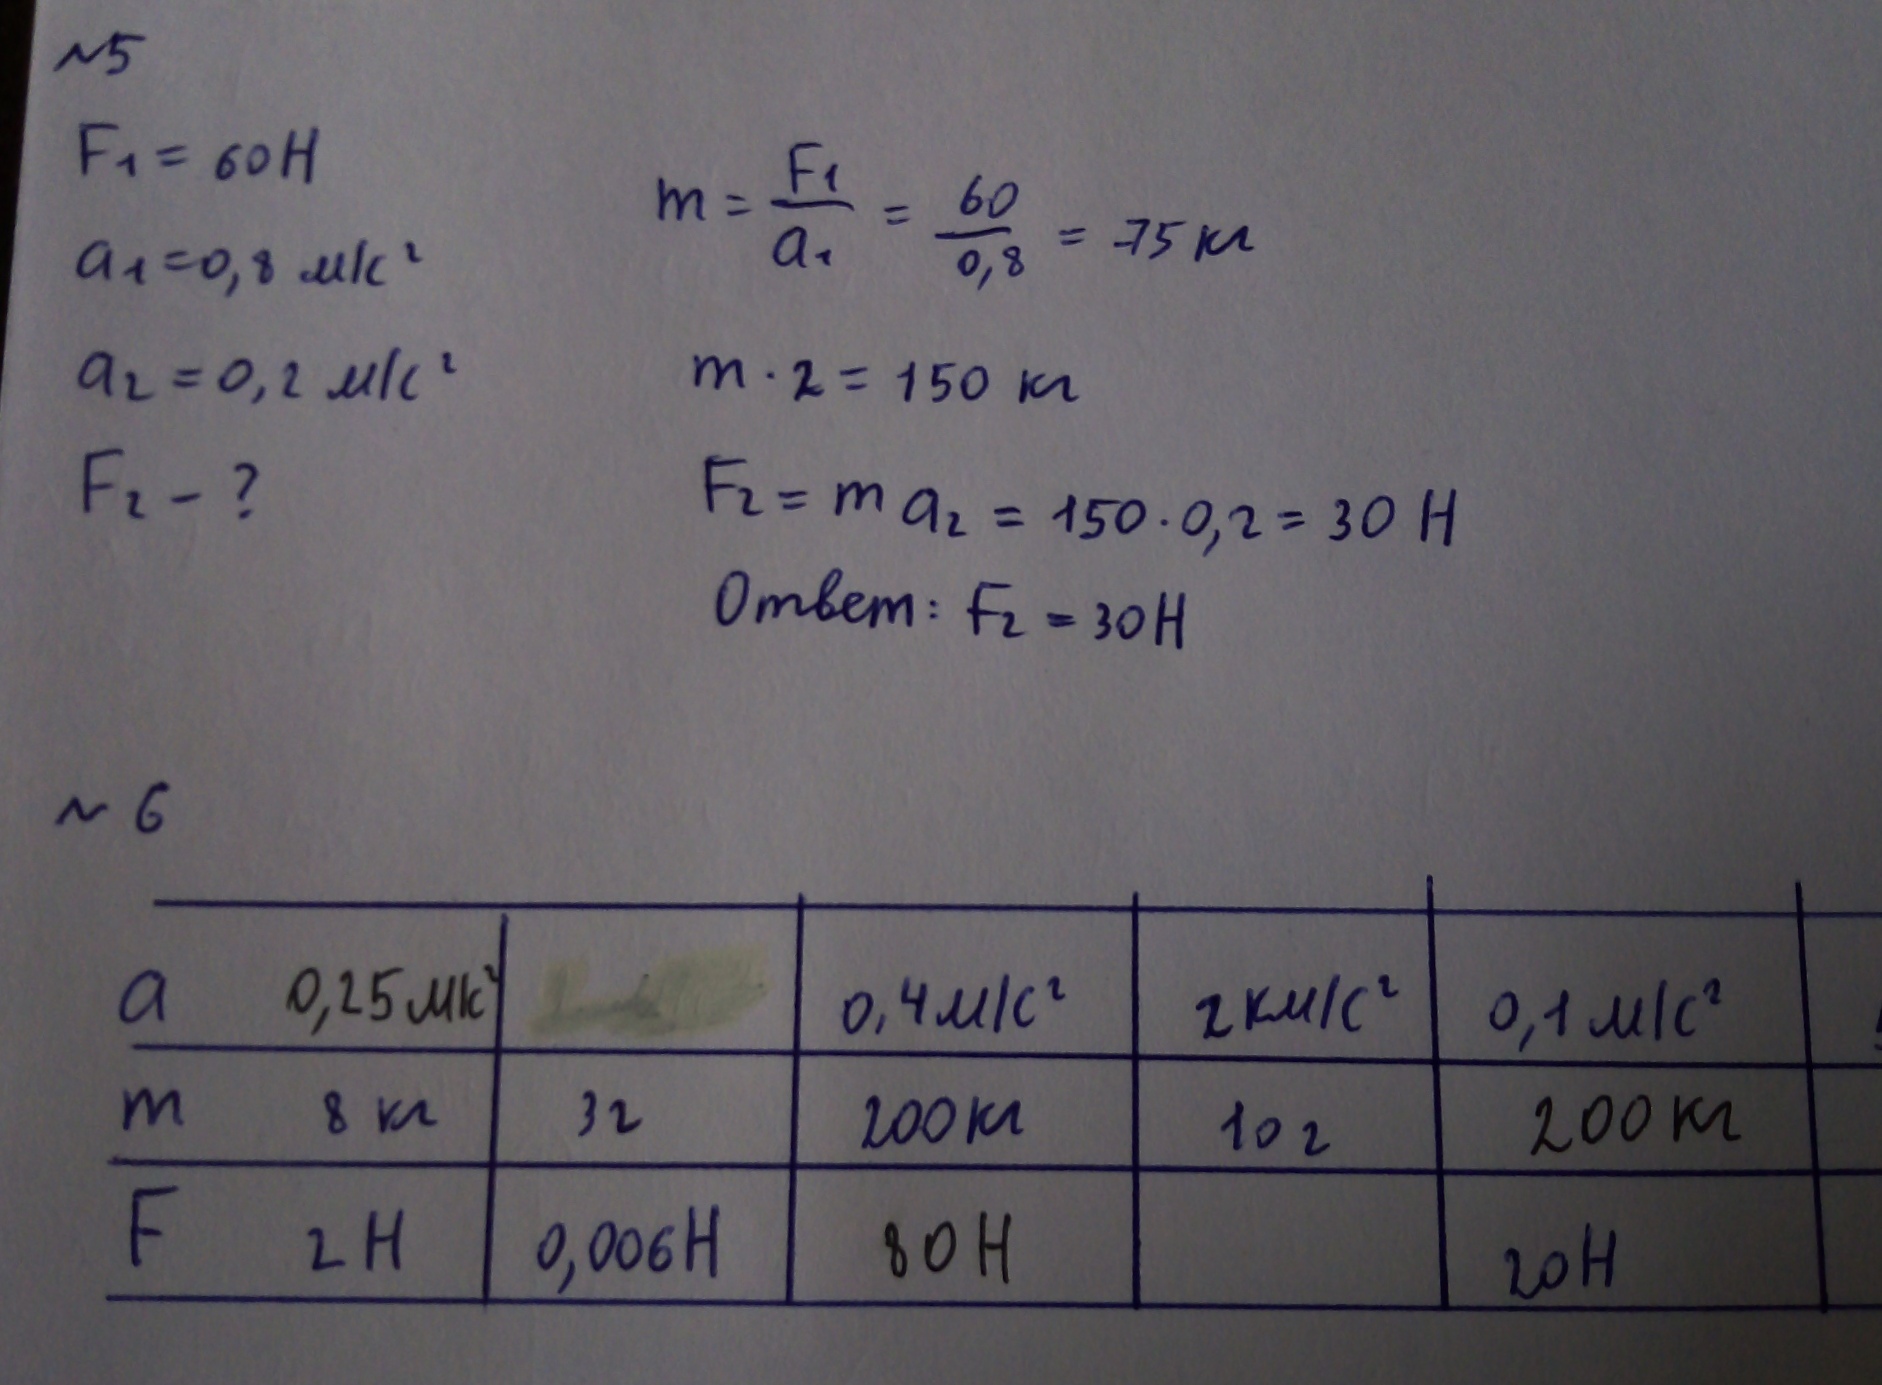 ~5
F1 = 60H
a1 = 0,8 м/с²
a2 = 0,2 м/с²
F2 - ?
m = F1/a1 = 60/0,8 = 75 кг
m · 2 = 150 кг
F2 = m a2 = 150 · 0,2 = 30 H
Ответ: F2 = 30H
~ 6
a 0,25 м/с² 0,4 м/с² 2 км/с² 0,1 м/с²
m 8 кг 3 г 200 кг 10 г 200 кг
F 2 H 0,006 H 80 H 20 H